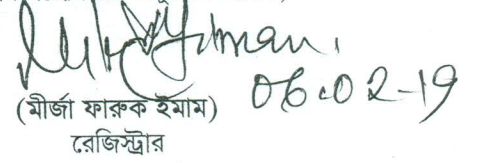 06.02-19
(মীর্জা ফারুক ইমাম)
রেজিস্ট্রার